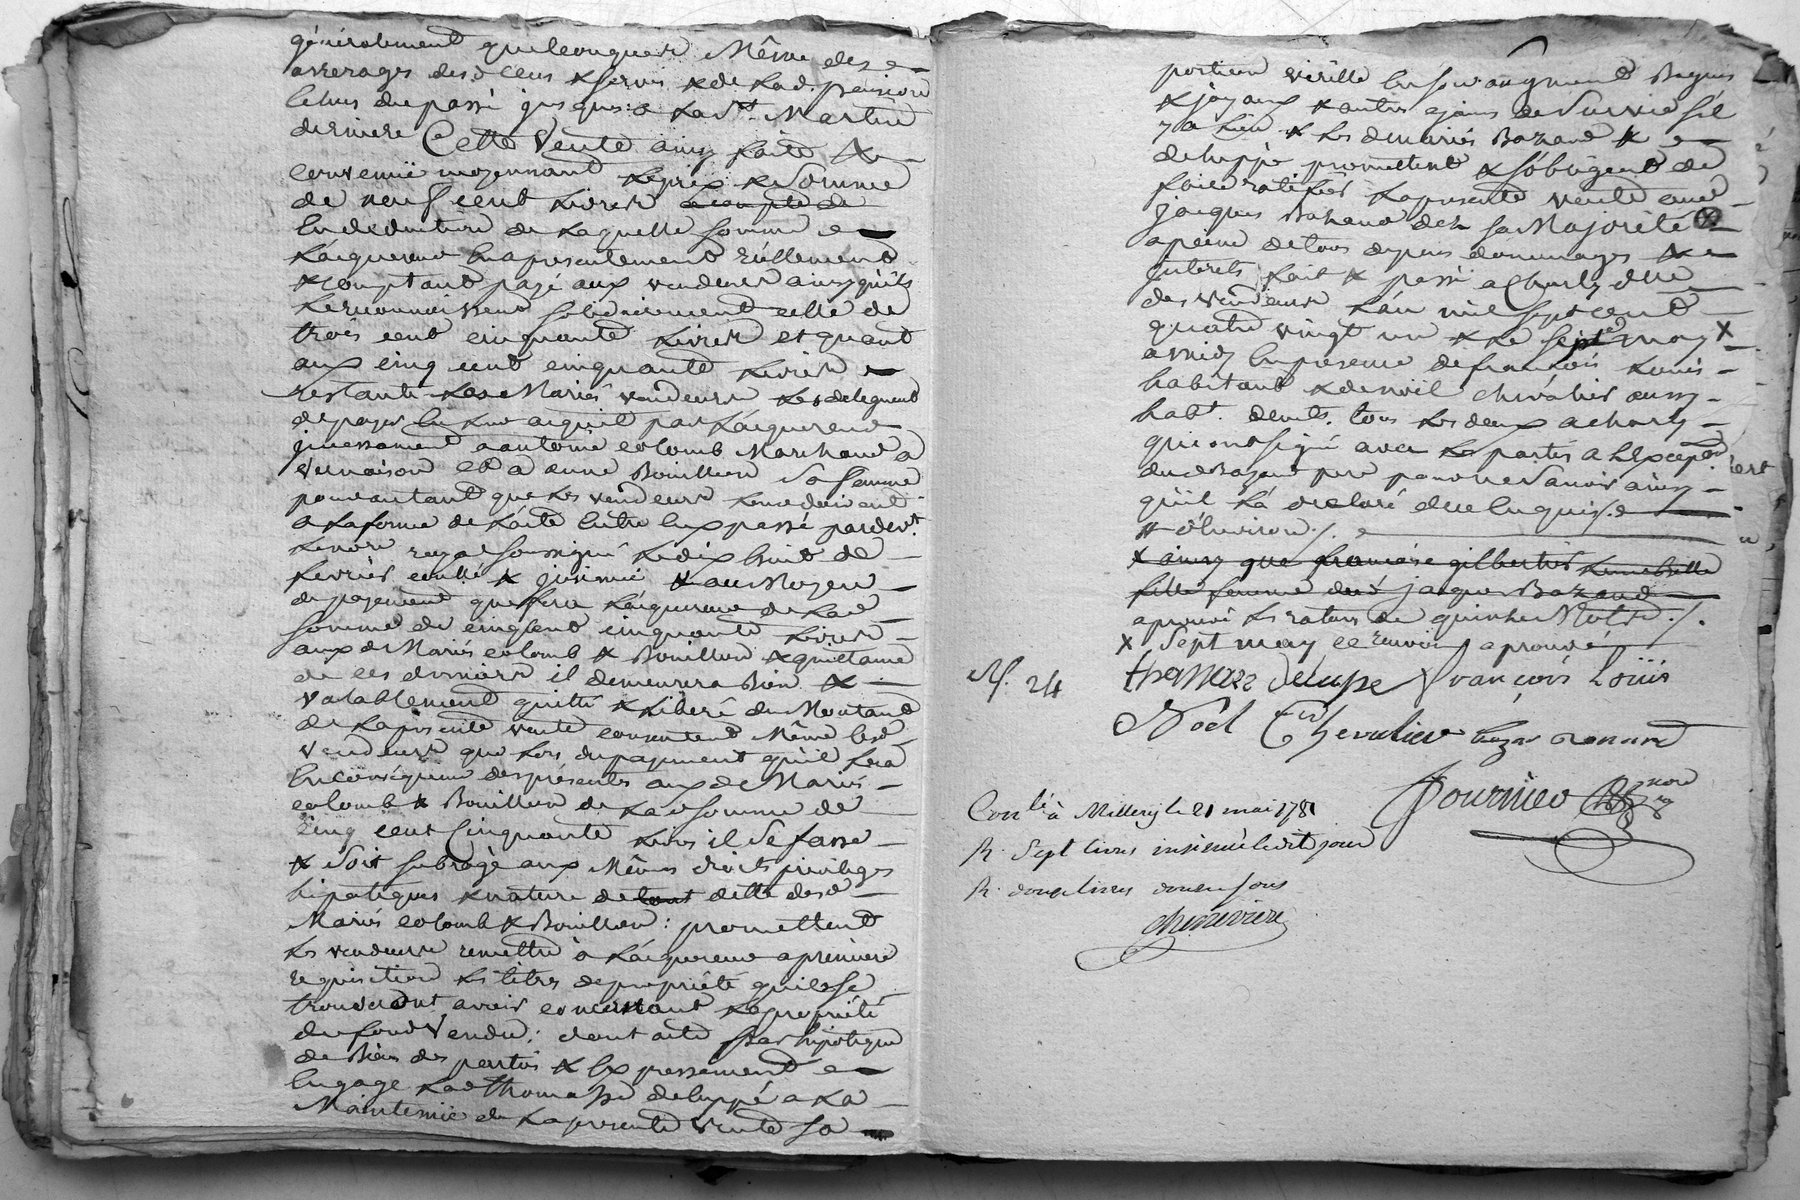 généralement quelconques Même des
arrerages des d. cens & servis & de lad. pension
échus du passé jusques a la St. Martin
derniere Cette Vente ainsy faitte &
convenüe moyennant le prix & somme
de neuf cent livres acompte de
En deduction de laquelle somme
l'acquereur a presentement réellement
& comptant payé aux vendeurs ainsy qu'ils
le reconnoissent solidairement celle de
trois cent cinquante livres et quant
aux cinq cent cinquante livres
restante les Mariés vendeurs deleguent
de payer acquit par l'acquereur
a antoine colomb Marchand a
vernaison et a anne Bouillon sa femme
pour autant que les vendeurs leur doivent
a la forme de l'acte entre eux passé pardevt.
le nore royal soussigné le dix huit de
fevrier & insinué & au Moyen
du payement que fera l'acquereur de lad
somme de cinq cent cinquante livres
aux d Mariés colomb & Bouillon & quittance
de ces derniers il demeurera Bien &
valablement quitte & liberé du Montant
de la presente vente consentent Même lesd
vendeurs que lors du payement qu'il fera
En conséquence des présentes aux d Mariés
colomb & Bouillon de lad somme de
cinq cent Cinquante livres il se fasse
& soit subrogé aux Mêmes droits privileges
hipoteques & nature de tout dette desd
Mariés colomb & Bouillon : promettent
les vendeurs remettre à l'acquereur a premiere
requisition les titres de propriété qu'ils se
trouveront avoir concernant la propriété
du fond Vendu : dont acte par hipoteque
de Biens des parties & Expressement
Engage lad thomasse deluppé a la
Maintenue de la presente vente sa
portion virille En son augment Bagues
& joyaux & autres gains de Survie s'il
y a lieu & les d mariés Bazand &
deluppé promettent & s'obligent de
faire ratifier la presente vente aud
jacques Bazand dès sa Majorité
a peine de tous depens dommages &
interets fait & passé a Charly
des vendeurs l'an mil sept cent
quatre vingt un & le sept may x
a midy En presence de françois Louis
habitant & de noël chevalier aussy
habt. tous les deux a charly
qui ont signé avec les parties a l'exception
dud Bazand pere pour ne savoir ainsy
qu'il l'a declaré de ce enquis /.
d'Environ /.
x ainsy que françoise gilbertier
femme dud jacques Bazand
aprouvé les ratures de quinze Mots /.
x Sept may ce renvoy aprouvé
M. 24 thomasse delupe françois Loüis
Noël Chevalier
fournier nore
Conlé à Millery le 21 mai 1781
R. Sept livres insinué ledit jour
R. douze livres douze sous
cheneviere